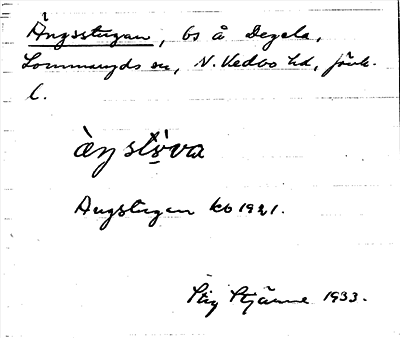 Ängsstugan, bs å Degla,
Lommaryds sn, N. Vedbo hd, Jönk.
l.
àŋstö̀va
Ängstugan kb 1921.
Stig Stjärne 1933.